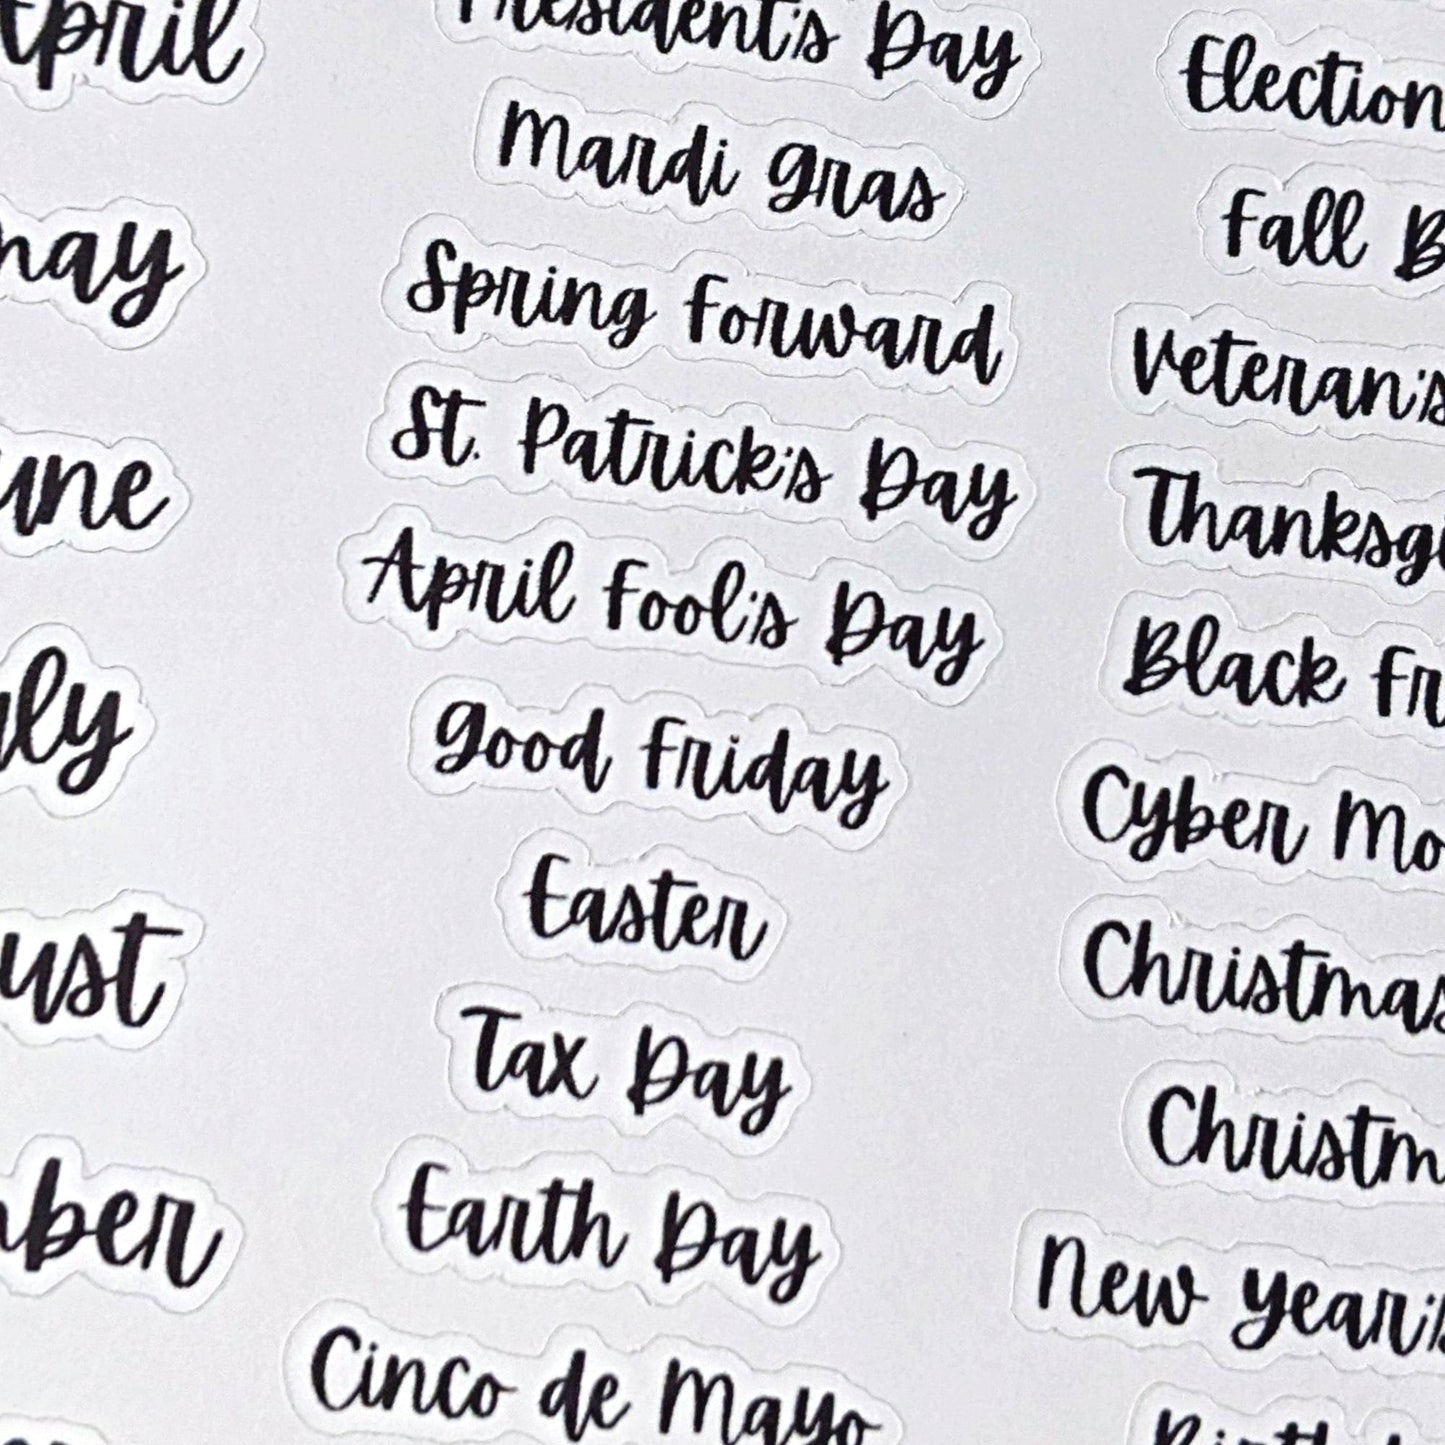 April
may
une
uly
ust
mber
President's Day
Mardi Gras
Spring Forward
St. Patrick's Day
April Fool's Day
Good Friday
Easter
Tax Day
Earth Day
Cinco de Mayo
Election
Fall B
Veteran's
Thanksgi
Black Fr
Cyber Mo
Christmas
Christm
New Year's